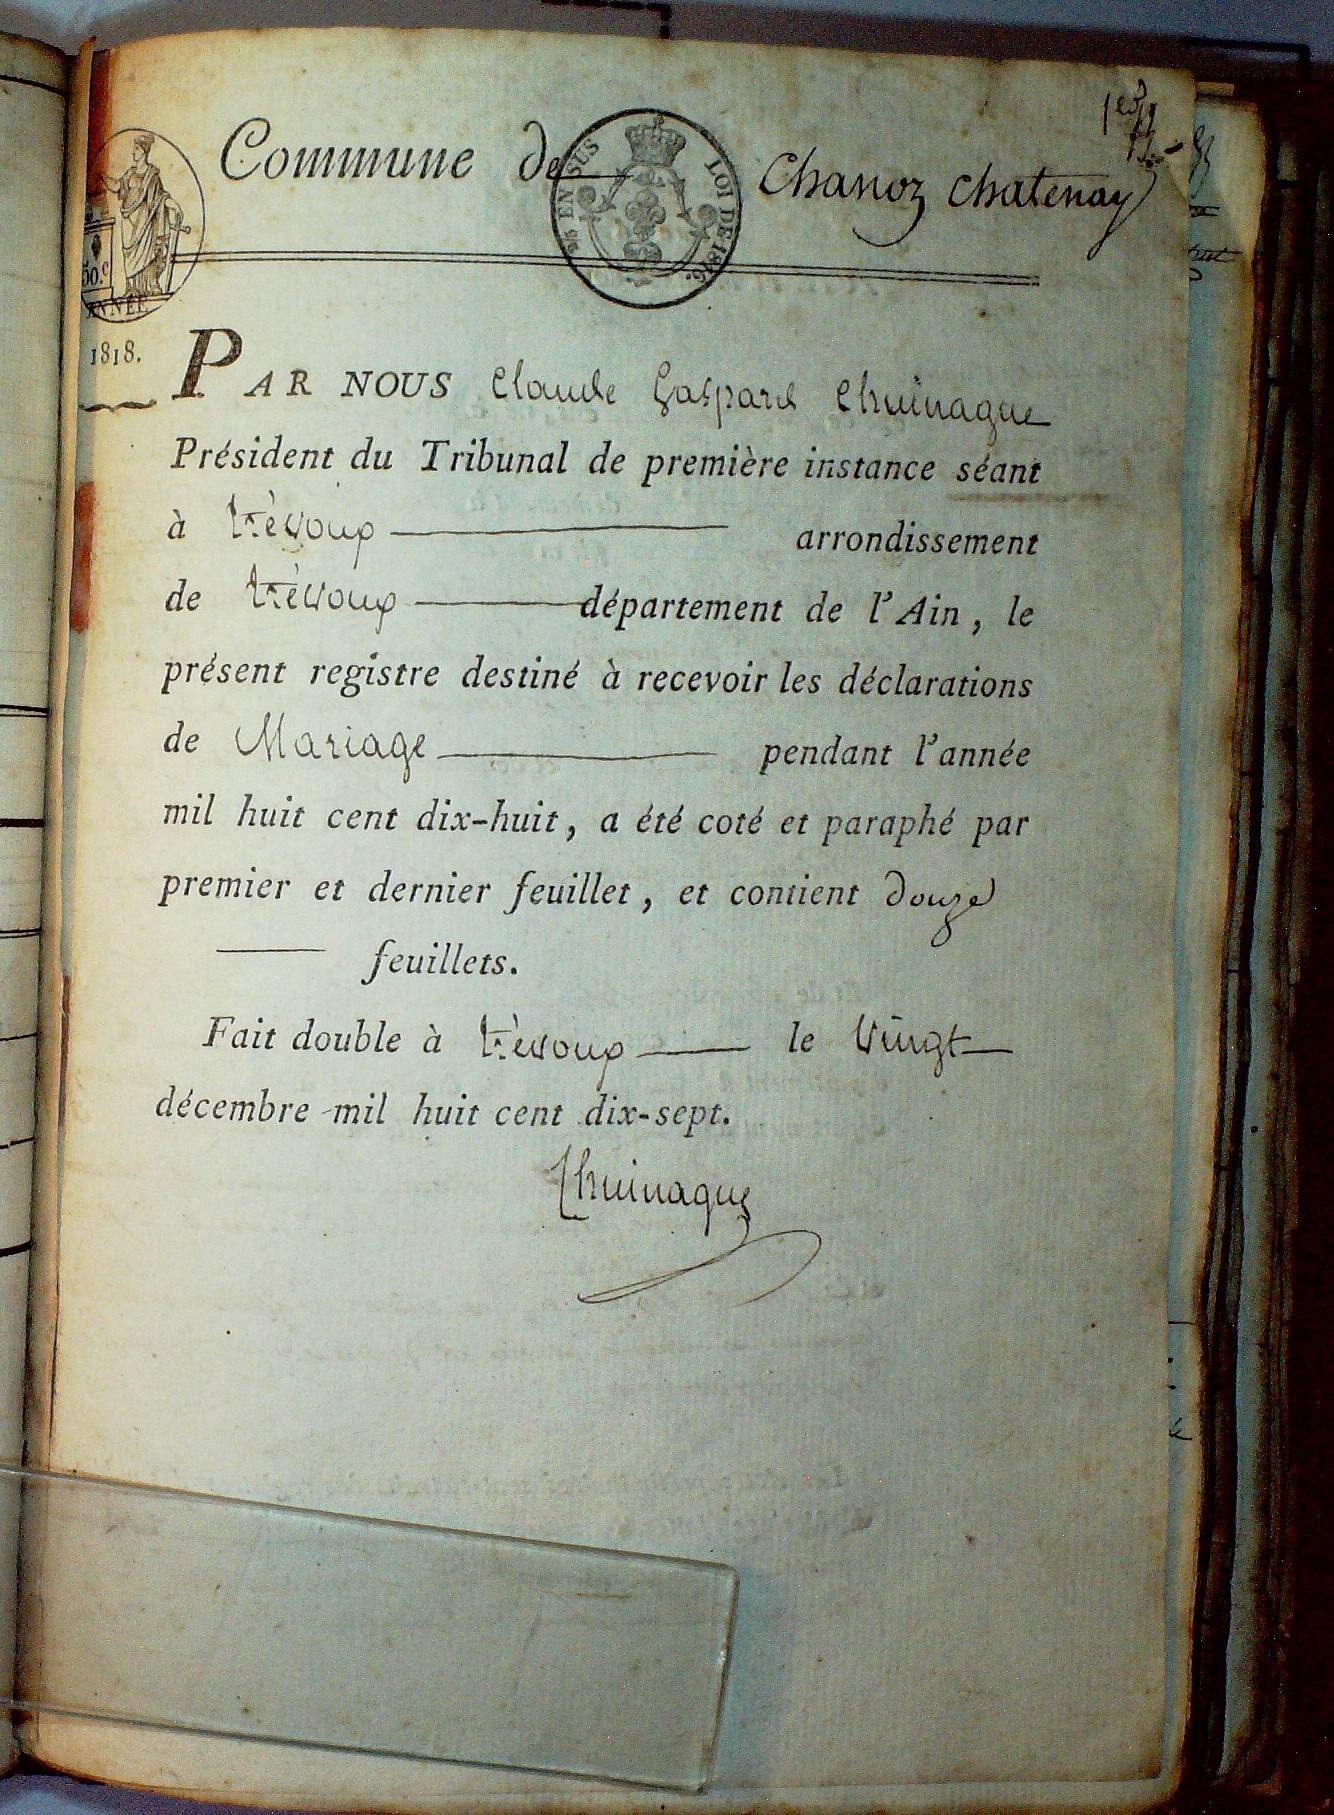 1er
Commune de Chanoz Chatenay
25 EN SUS LOI DE 1816.
50.c
ANNÉE
1818.
PAR NOUS Claude Gaspard Chuinague
Président du Tribunal de première instance séant
à trévoux arrondissement
de trévoux département de l'Ain, le
présent registre destiné à recevoir les déclarations
de Mariage pendant l'année
mil huit cent dix-huit, a été coté et paraphé par
premier et dernier feuillet, et contient douze
feuillets.
Fait double à trévoux le vingt
décembre mil huit cent dix-sept.
Chuinague